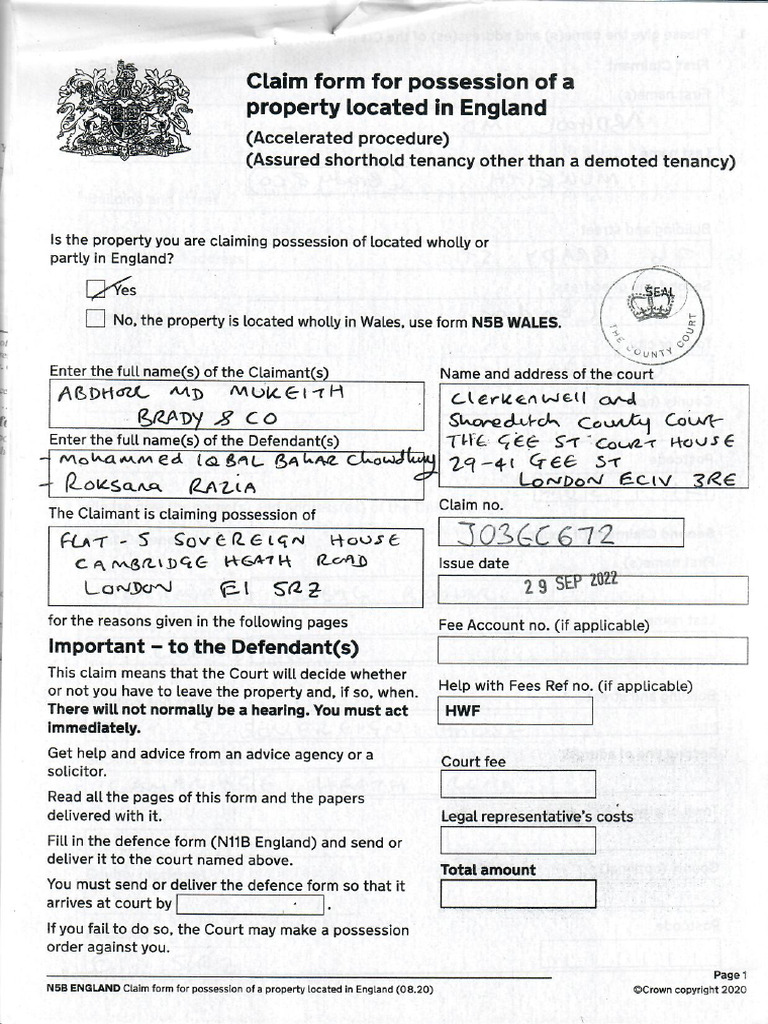 Claim form for possession of a
property located in England
(Accelerated procedure)
(Assured shorthold tenancy other than a demoted tenancy)
Is the property you are claiming possession of located wholly or
partly in England?
Yes
No, the property is located wholly in Wales, use form N5B WALES.
SEAL
THE COUNTY COURT
Enter the full name(s) of the Claimant(s)
ABDHOLL MD MUKEITH
BRADY & CO
Enter the full name(s) of the Defendant(s)
- Mohammed IQBAL BAHAR Chowdhury
- Roksana RAZIA
The Claimant is claiming possession of
FLAT - 5 SOVEREIGN HOUSE
CAMBRIDGE HEATH ROAD
LONDON E1 5RZ
for the reasons given in the following pages
Important – to the Defendant(s)
This claim means that the Court will decide whether
or not you have to leave the property and, if so, when.
There will not normally be a hearing. You must act
immediately.
Get help and advice from an advice agency or a
solicitor.
Read all the pages of this form and the papers
delivered with it.
Fill in the defence form (N11B England) and send or
deliver it to the court named above.
You must send or deliver the defence form so that it
arrives at court by .
If you fail to do so, the Court may make a possession
order against you.
Name and address of the court
Clerkenwell and
Shoreditch County Court
THE GEE ST COURT HOUSE
29-41 GEE ST
LONDON EC1V 3RE
Claim no.
J03GC672
Issue date
29 SEP 2022
Fee Account no. (if applicable)
Help with Fees Ref no. (if applicable)
HWF
Court fee
Legal representative's costs
Total amount
Page 1
N5B ENGLAND Claim form for possession of a property located in England (08.20)
©Crown copyright 2020